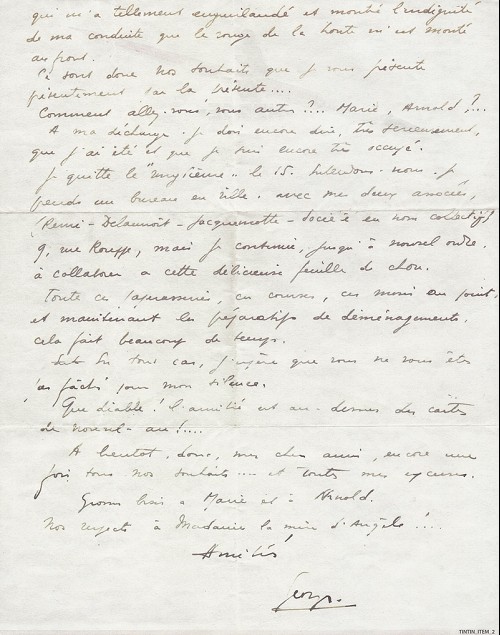 qui m'a tellement enguirlandé et montré l'indignité
de ma conduite que le rouge de la honte m'est monté
au front.
Ce sont donc nos souhaits que je vous présente
présentement par la présente....
Comment allez-vous, vous autres ?... Marie, Arnold ?...
A ma décharge, je dois encore dire, très sérieusement,
que j'ai été et que je suis encore très occupé.
Je quitte le "Vingtième" le 15. Entendons-nous. Je
prends un bureau en ville, avec mes deux associés,
(Remi - Delaunoit - Jacquemotte - Société en nom collectif)
9, rue Rouppe, mais je continue, jusqu'à nouvel ordre,
à collaborer à cette délicieuse feuille de chou.
Toute ces paperasserie, ces courses, ces mises au point
et maintenant les préparatifs de déménagements,
cela fait beaucoup de temps.
En tout cas, j'espère que vous ne vous êtes
pas fâchés pour mon silence.
Que diable ! l'amitié est au-dessus des cartes
de nouvel-an !....
A bientôt, donc, mes chers amis, encore une
fois tous nos souhaits.... et toutes mes excuses.
Gros bais à Marie et à Arnold.
Nos respects à Madame la mère d'Angèle !...
Amitiés
Georges.
TINTIN_ITEM_2